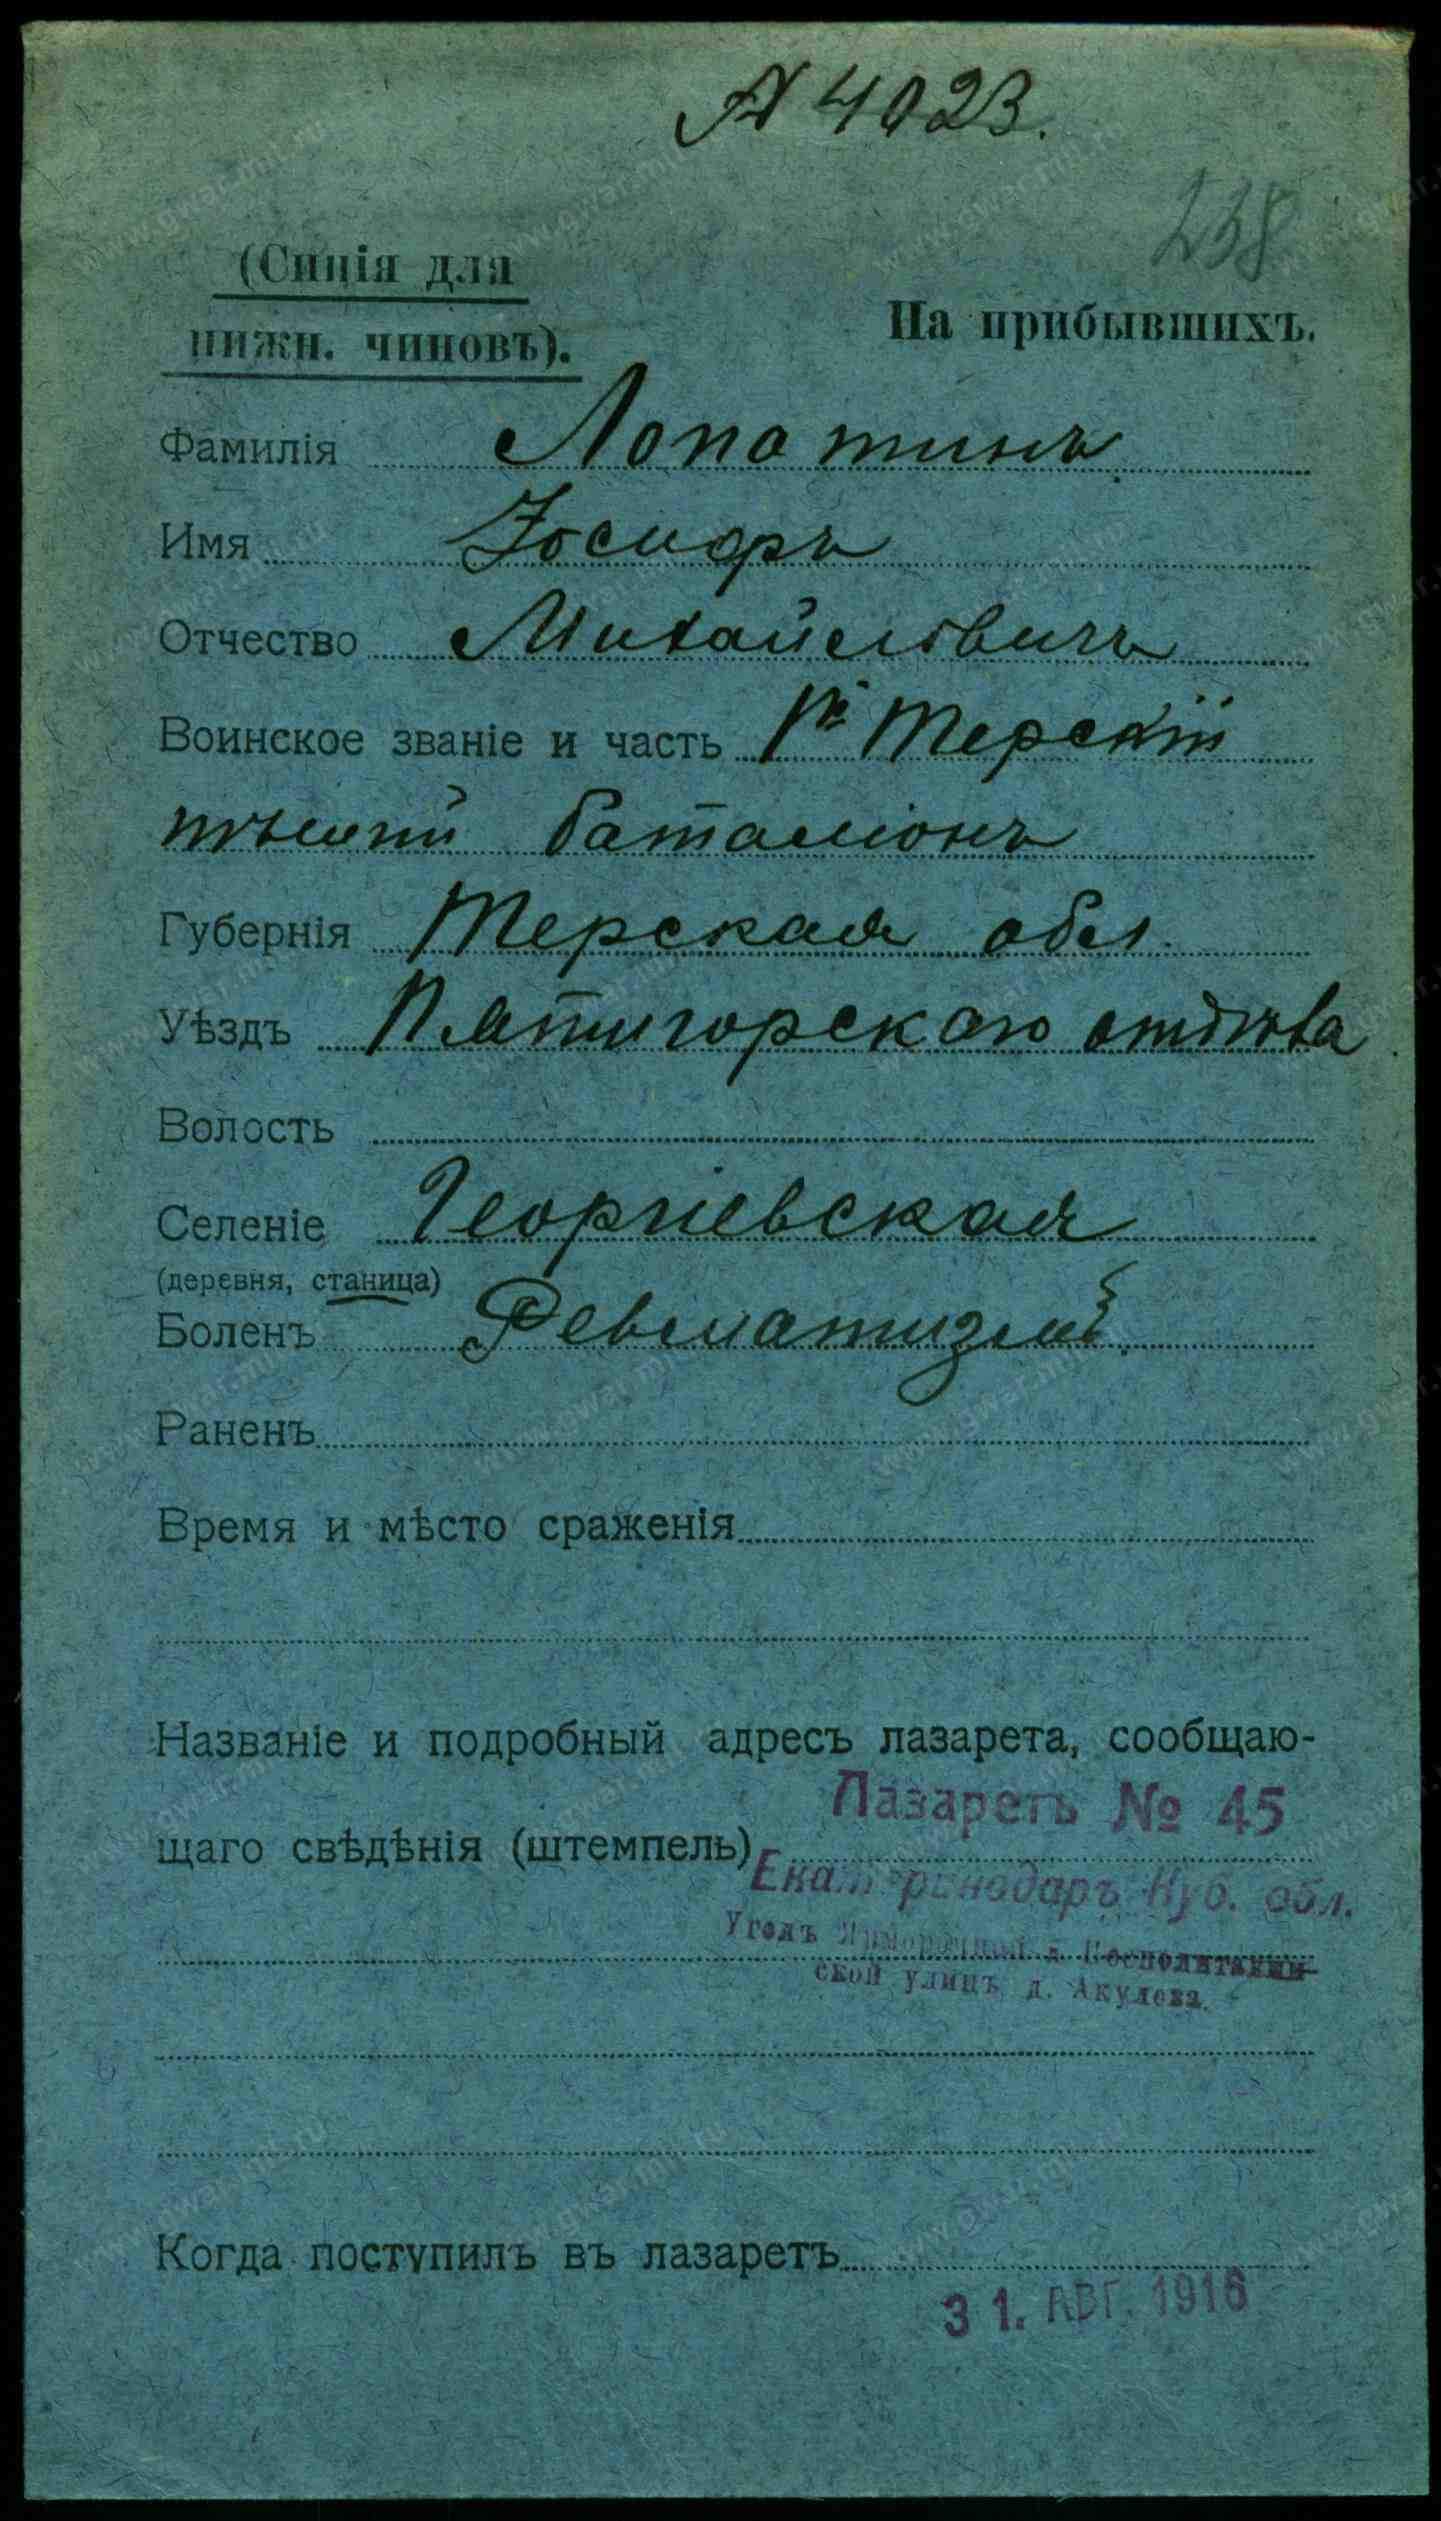 № 4023.
238
(Синія для
нижн. чиновъ).
На прибывшихъ.
Фамилія Лопатинъ
Имя Іосифъ
Отчество Михайловичъ
Воинское званіе и часть 1й Терскій
пѣшій баталіонъ
Губернія Терская обл.
Уѣздъ Пятигорскаго отдѣла
Волость
Селеніе Георгіевская
(деревня, станица)
Боленъ Ревматизмъ
Раненъ
Время и мѣсто сраженія
Названіе и подробный адресъ лазарета, сообщаю-
Лазаретъ № 45
щаго свѣдѣнія (штемпель)
Екатеринодаръ Куб. обл.
Уголъ Ярмарочной и Посполитакин-
ской улицъ д. Акулова.
Когда поступилъ въ лазаретъ
31. АВГ. 1916
www.gwar.mil.ru